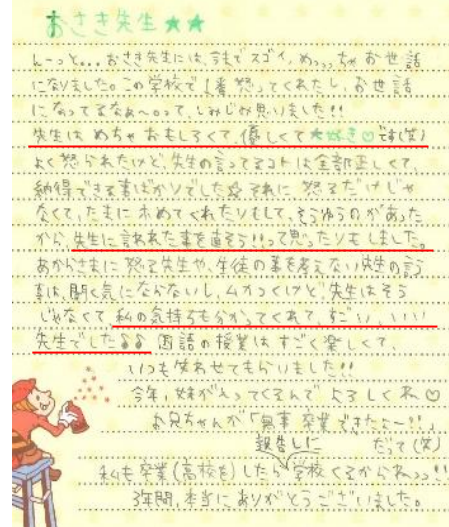 おさき先生★★
んーっと…おさき先生には、今までスゴイ、めっっっちゃお世話
になりました。この学校で1番怒ってくれたし、お世話
になってるなぁ〜。って、しみじみ思いました!!
先生は、めちゃおもしろくて、優しくて大好き♡です(笑)
よく怒られたけど、先生の言ってるコトは全部正しくて、
納得できる事ばかりでした☆それに 怒るだけじゃ
なくて、たまにホめてくれたりもして、そうゆうのがあった
から、先生に言われた事を直そう!!って思ったりもしました。
あからさまに怒る先生や、生徒の事を考えない先生の言う
事は、聞く気にならないし、ムカつくけど、先生はそう
じゃなくて、私の気持ちも分かってくれて、すごい、いい
先生でした♪♪ 国語の授業はすごく楽しくて、
いつも笑わせてもらいました!!
今年、妹が入ってくるんで よろしくね♡
お兄ちゃんが「無事卒業できたよ〜!!」
報告しに だって(笑)
私も卒業(高校を)したら 学校くるからねっっ!!
3年間、本当にありがとうございました。